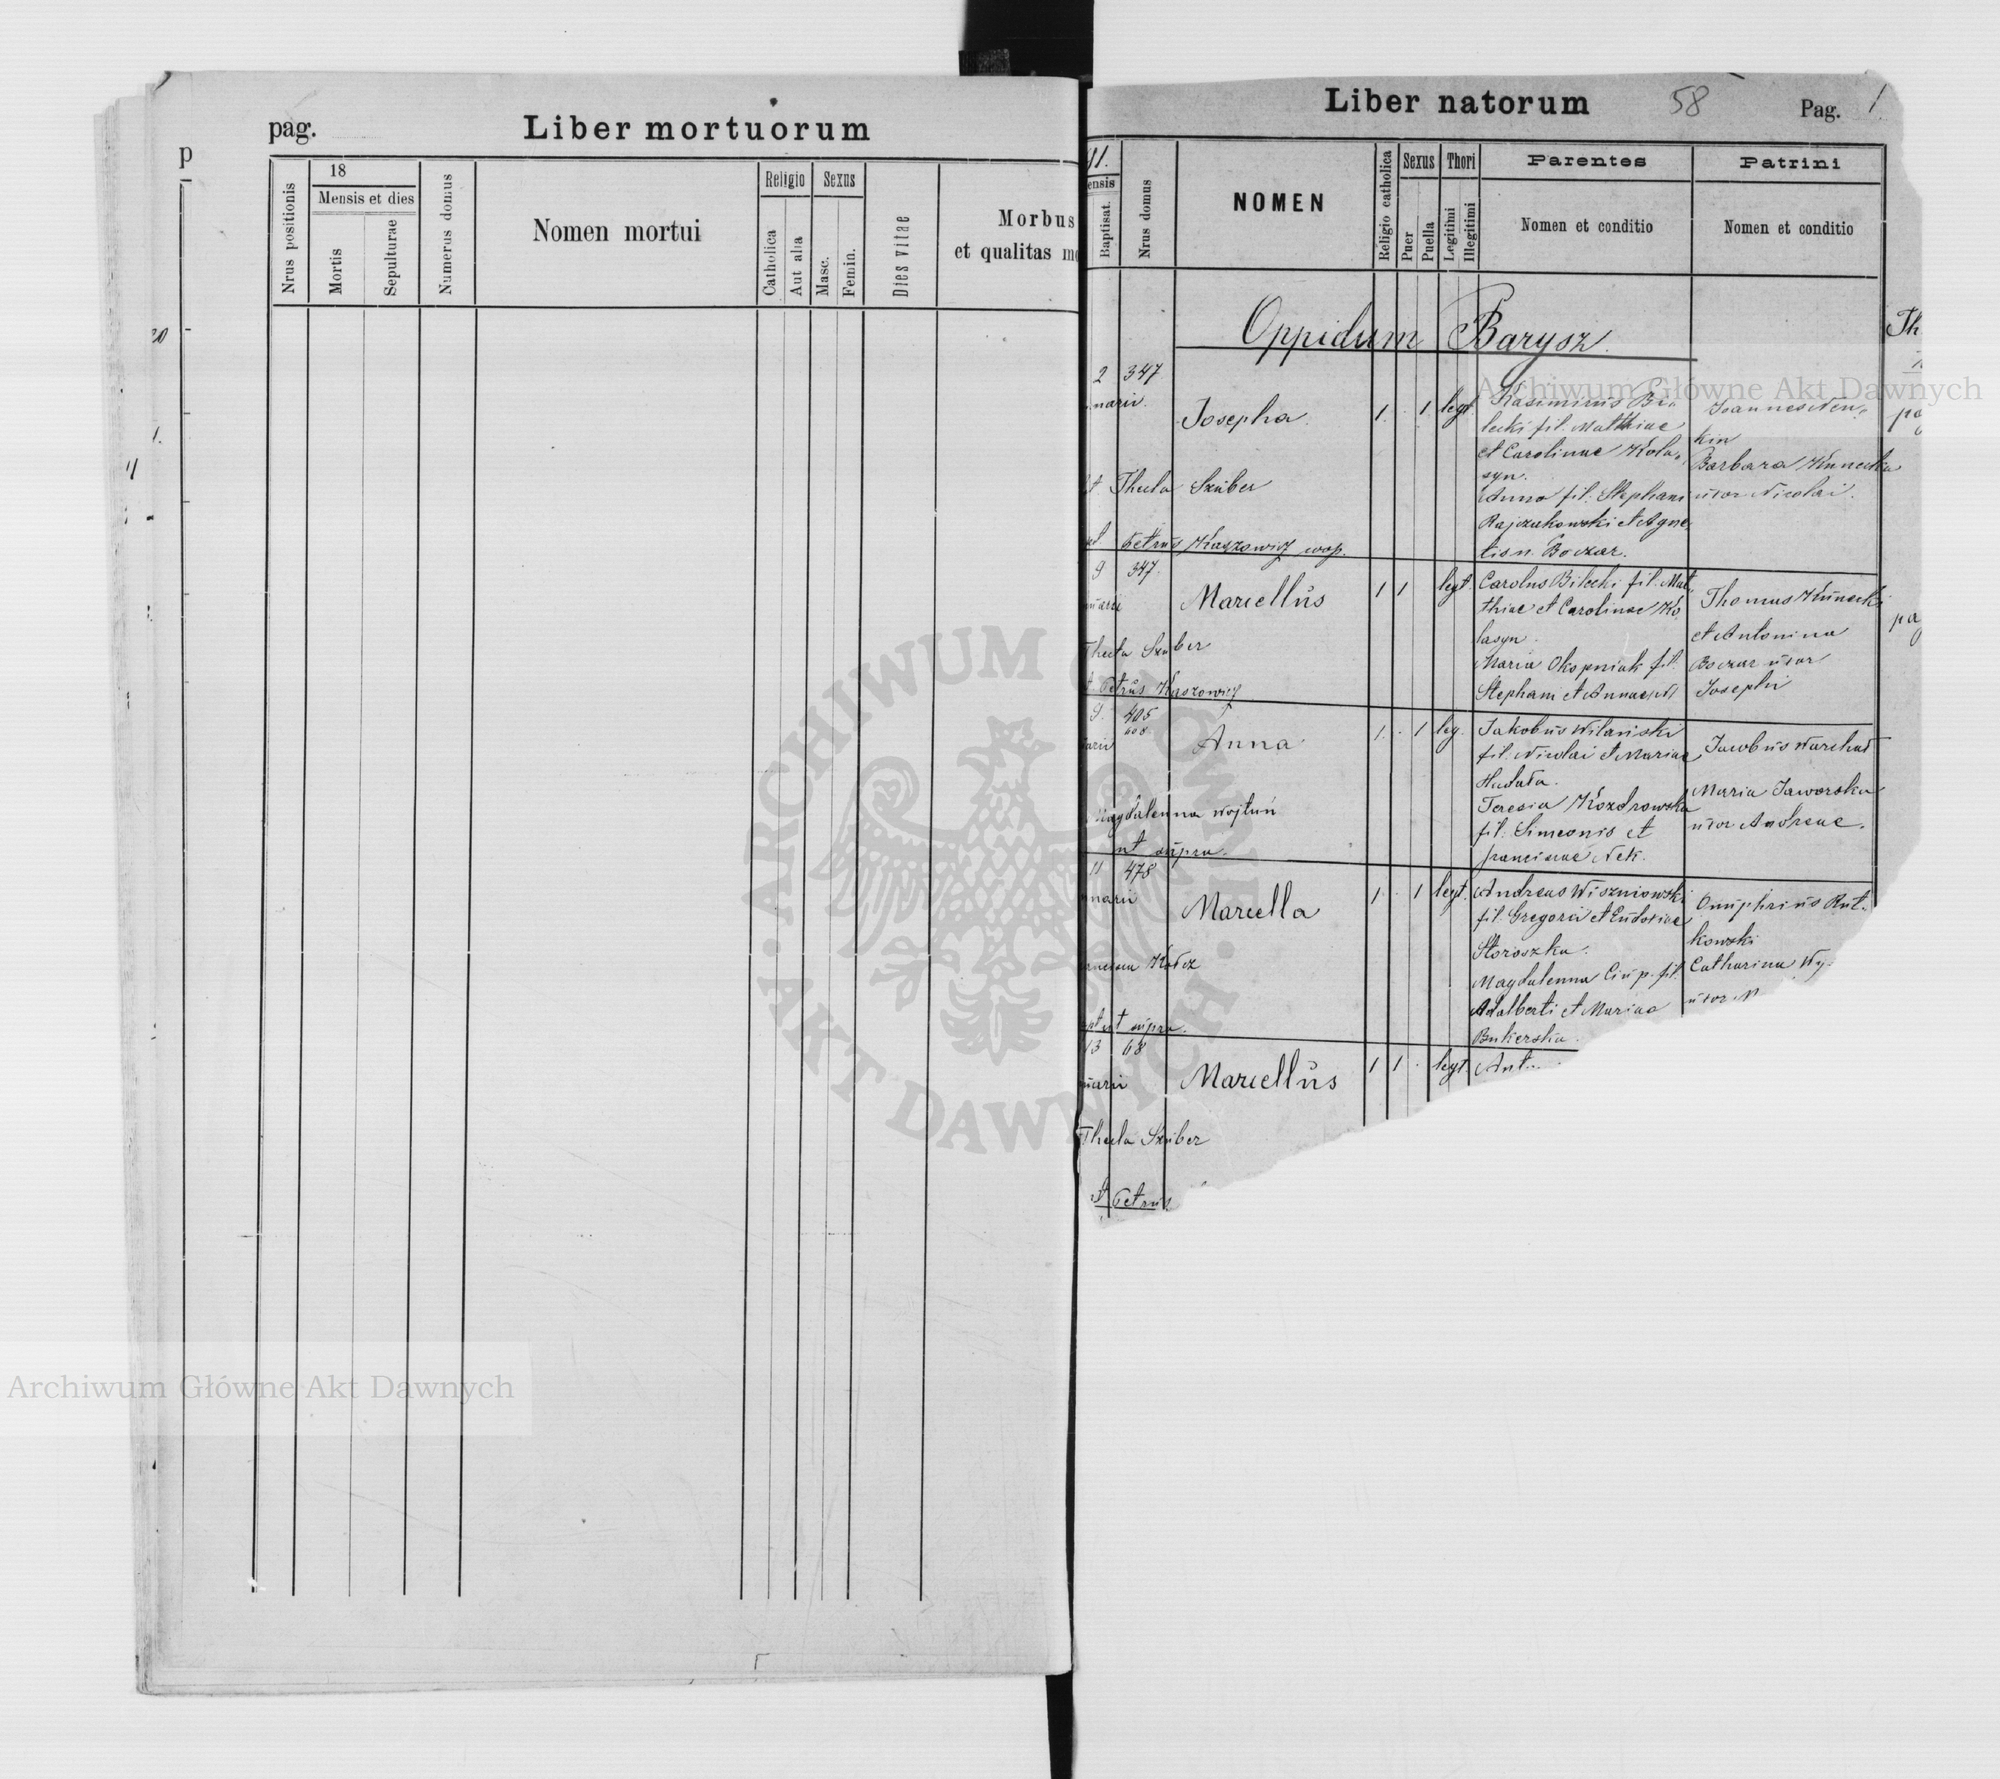 pag.
Liber mortuorum
p
Nrus positionis
18
Mensis et dies
Mortis
Sepulturae
Numerus domus
Nomen mortui
Religio
Catholica
Aut alia
Sexus
Masc.
Femin.
Dies vitae
Morbus
et qualitas
Liber natorum
58
Pag. 1
91.
ensis
Baptisat.
Nrus domus
NOMEN
Religio catholica
Sexus
Puer
Puella
Thori
Legitimi
Illegitimi
Parentes
Nomen et conditio
Patrini
Nomen et conditio
Oppidum Barysz.
2 347
nuarii.
Josepha.
1 . 1 legt.
Kasimirus Bi-
lecki fil. Matthiae
et Carolinae Kola-
syn.
Anna fil. Stephani
Rajczakowski et Agne
tis n. Boczar.
Joannes
kin
Barbara Kunecka
uxor Nicolai.
Thecla Szuber
Petrus Kaszowicz
9 347.
nuarii
Marcellus
1 1 legt.
Carolus Bilecki fil. Mat-
thiae et Carolinae Ko
lasyn.
Maria Okopniak fil.
Stephani et Annae
Thomas Kunecki
et Antonina
Boczar uxor
Josephi
Thecla Szuber
Petrus Kaszowicz
9. 405
408
uarii
Anna
1 . 1 leg.
Jakobus Wilański
fil. Nicolai et Mariae
Teresia Kozdrowska
fil. Simeonis et
Franciscae
Jacobus
Maria Jaworska
uxor Andreae.
Magdalenna Wojtuń
ut supra.
11 478
nuarii
Marcella
1 . 1 legt.
Andreas Wiszniowski
fil. Gregorii et Eudoxiae
Storoszka.
Magdalenna Ciup. fil.
Adalberti et Mariae
Bukerska.
Onuphrius Rut-
kowski
Catharina Wy-
uxor
ut supra.
13 68
nuarii
Marcellus
1 1 . legt.
Ant
Thecla Szuber
Petrus
Th
pa
pa
Archiwum Główne Akt Dawnych
Archiwum Główne Akt Dawnych
ARCHIWUM GŁÓWNE
AKT DAWNYCH